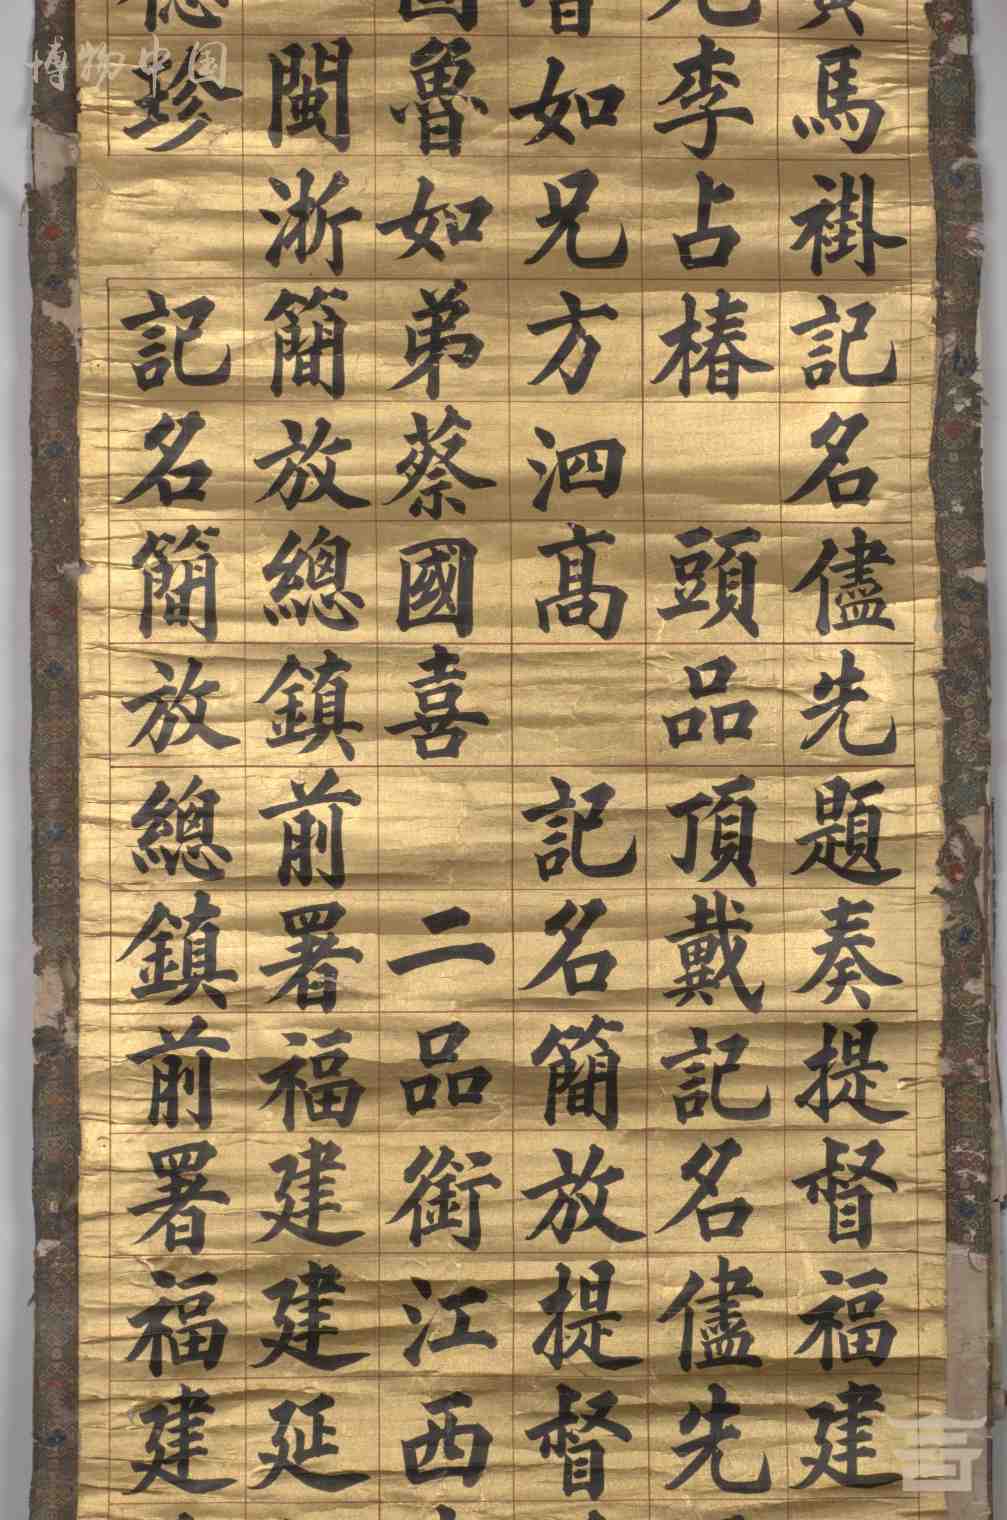 黃馬褂記名儘先題奏提督福建
李占椿 頭品頂戴記名儘先
如兄方泗高 記名簡放提督
魯如弟蔡國喜 二品銜江西
閩浙簡放總鎮前署福建建延
珍 記名簡放總鎮前署福建
博物中国